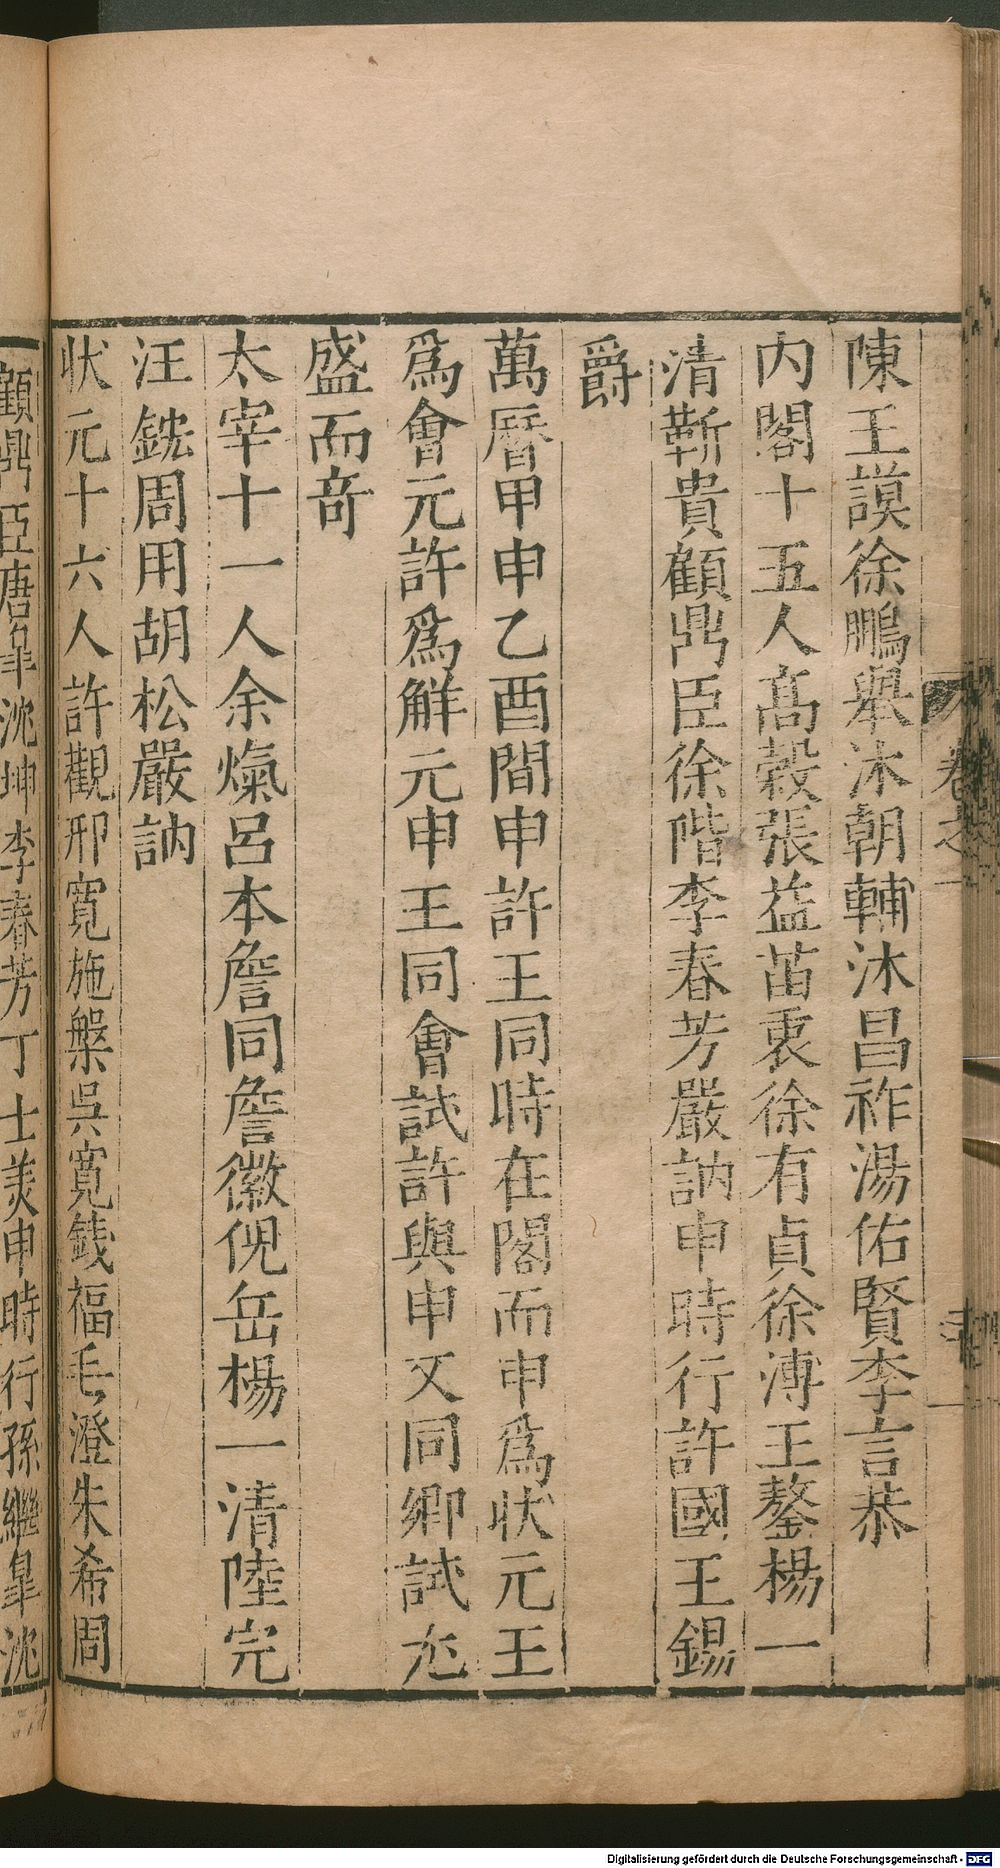 陳王謨徐鵬舉沐朝輔沐昌祚湯佑賢李言恭
内閣十五人高穀張益苗衷徐有貞徐溥王鏊楊一
清靳貴顧鼎臣徐階李春芳嚴訥申時行許國王錫
爵
萬曆甲申乙酉間申許王同時在閣而申爲狀元王
爲會元許爲解元申王同會試許與申又同鄉試尤
盛而奇
太宰十一人余熂呂本詹同詹徽倪岳楊一清陸完
汪鋐周用胡松嚴訥
狀元十六人許觀邢寬施槃吳寬錢福毛澄朱希周
顧鼎臣唐皐沈坤李春芳丁士美申時行孫繼皐沈
卷之一
Digitalisierung gefördert durch die Deutsche Forschungsgemeinschaft - DFG